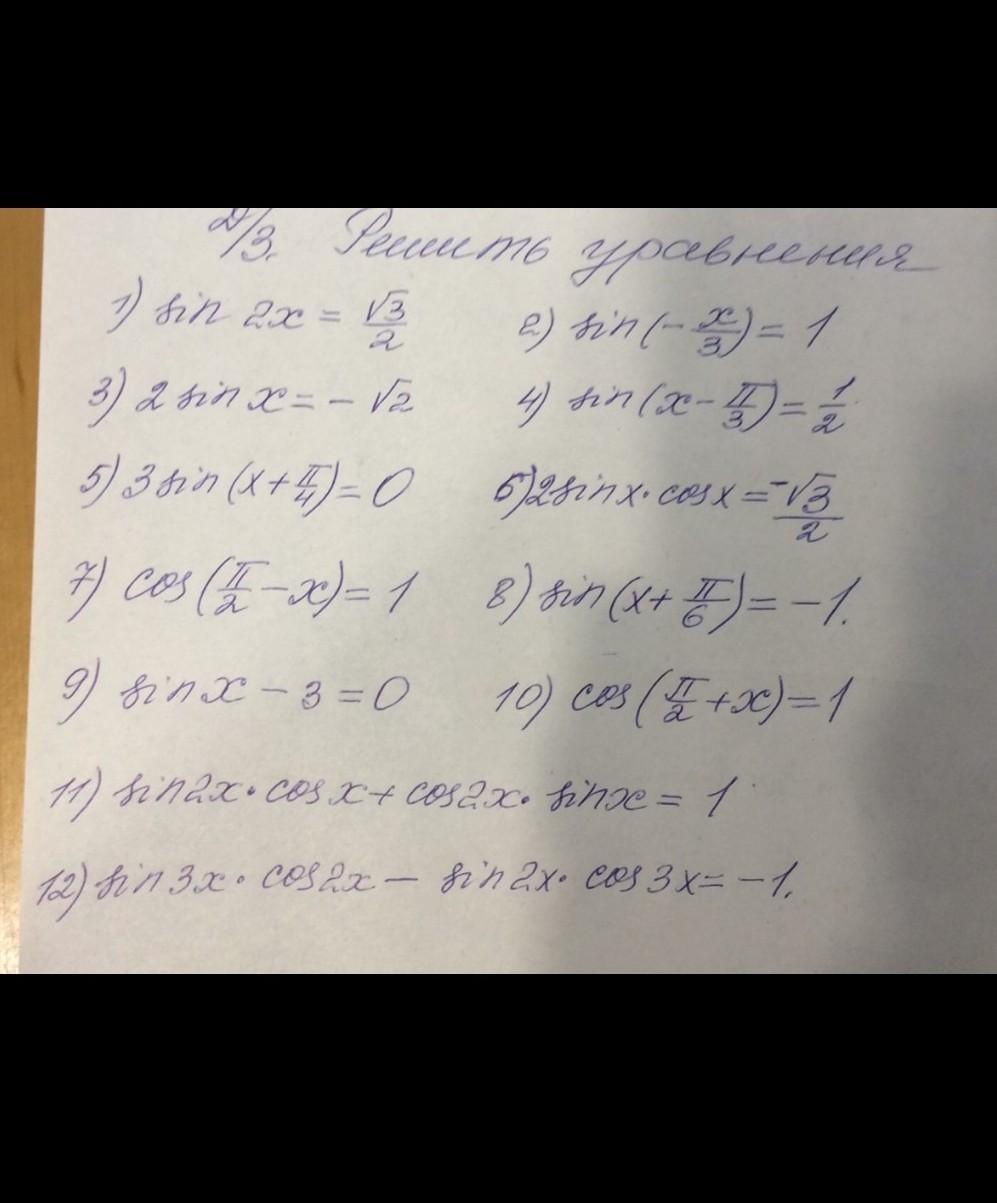 Д/З. Решить уравнения
1) sin 2x = √3/2 2) sin(-x/3) = 1
3) 2 sin x = - √2 4) sin(x - π/3) = 1/2
5) 3 sin (x + π/4) = 0 6) 2 sin x · cos x = -√3/2
7) cos (π/2 - x) = 1 8) sin (x + π/6) = -1.
9) sin x - 3 = 0 10) cos (π/2 + x) = 1
11) sin 2x · cos x + cos 2x · sin x = 1
12) sin 3x · cos 2x - sin 2x · cos 3x = -1.